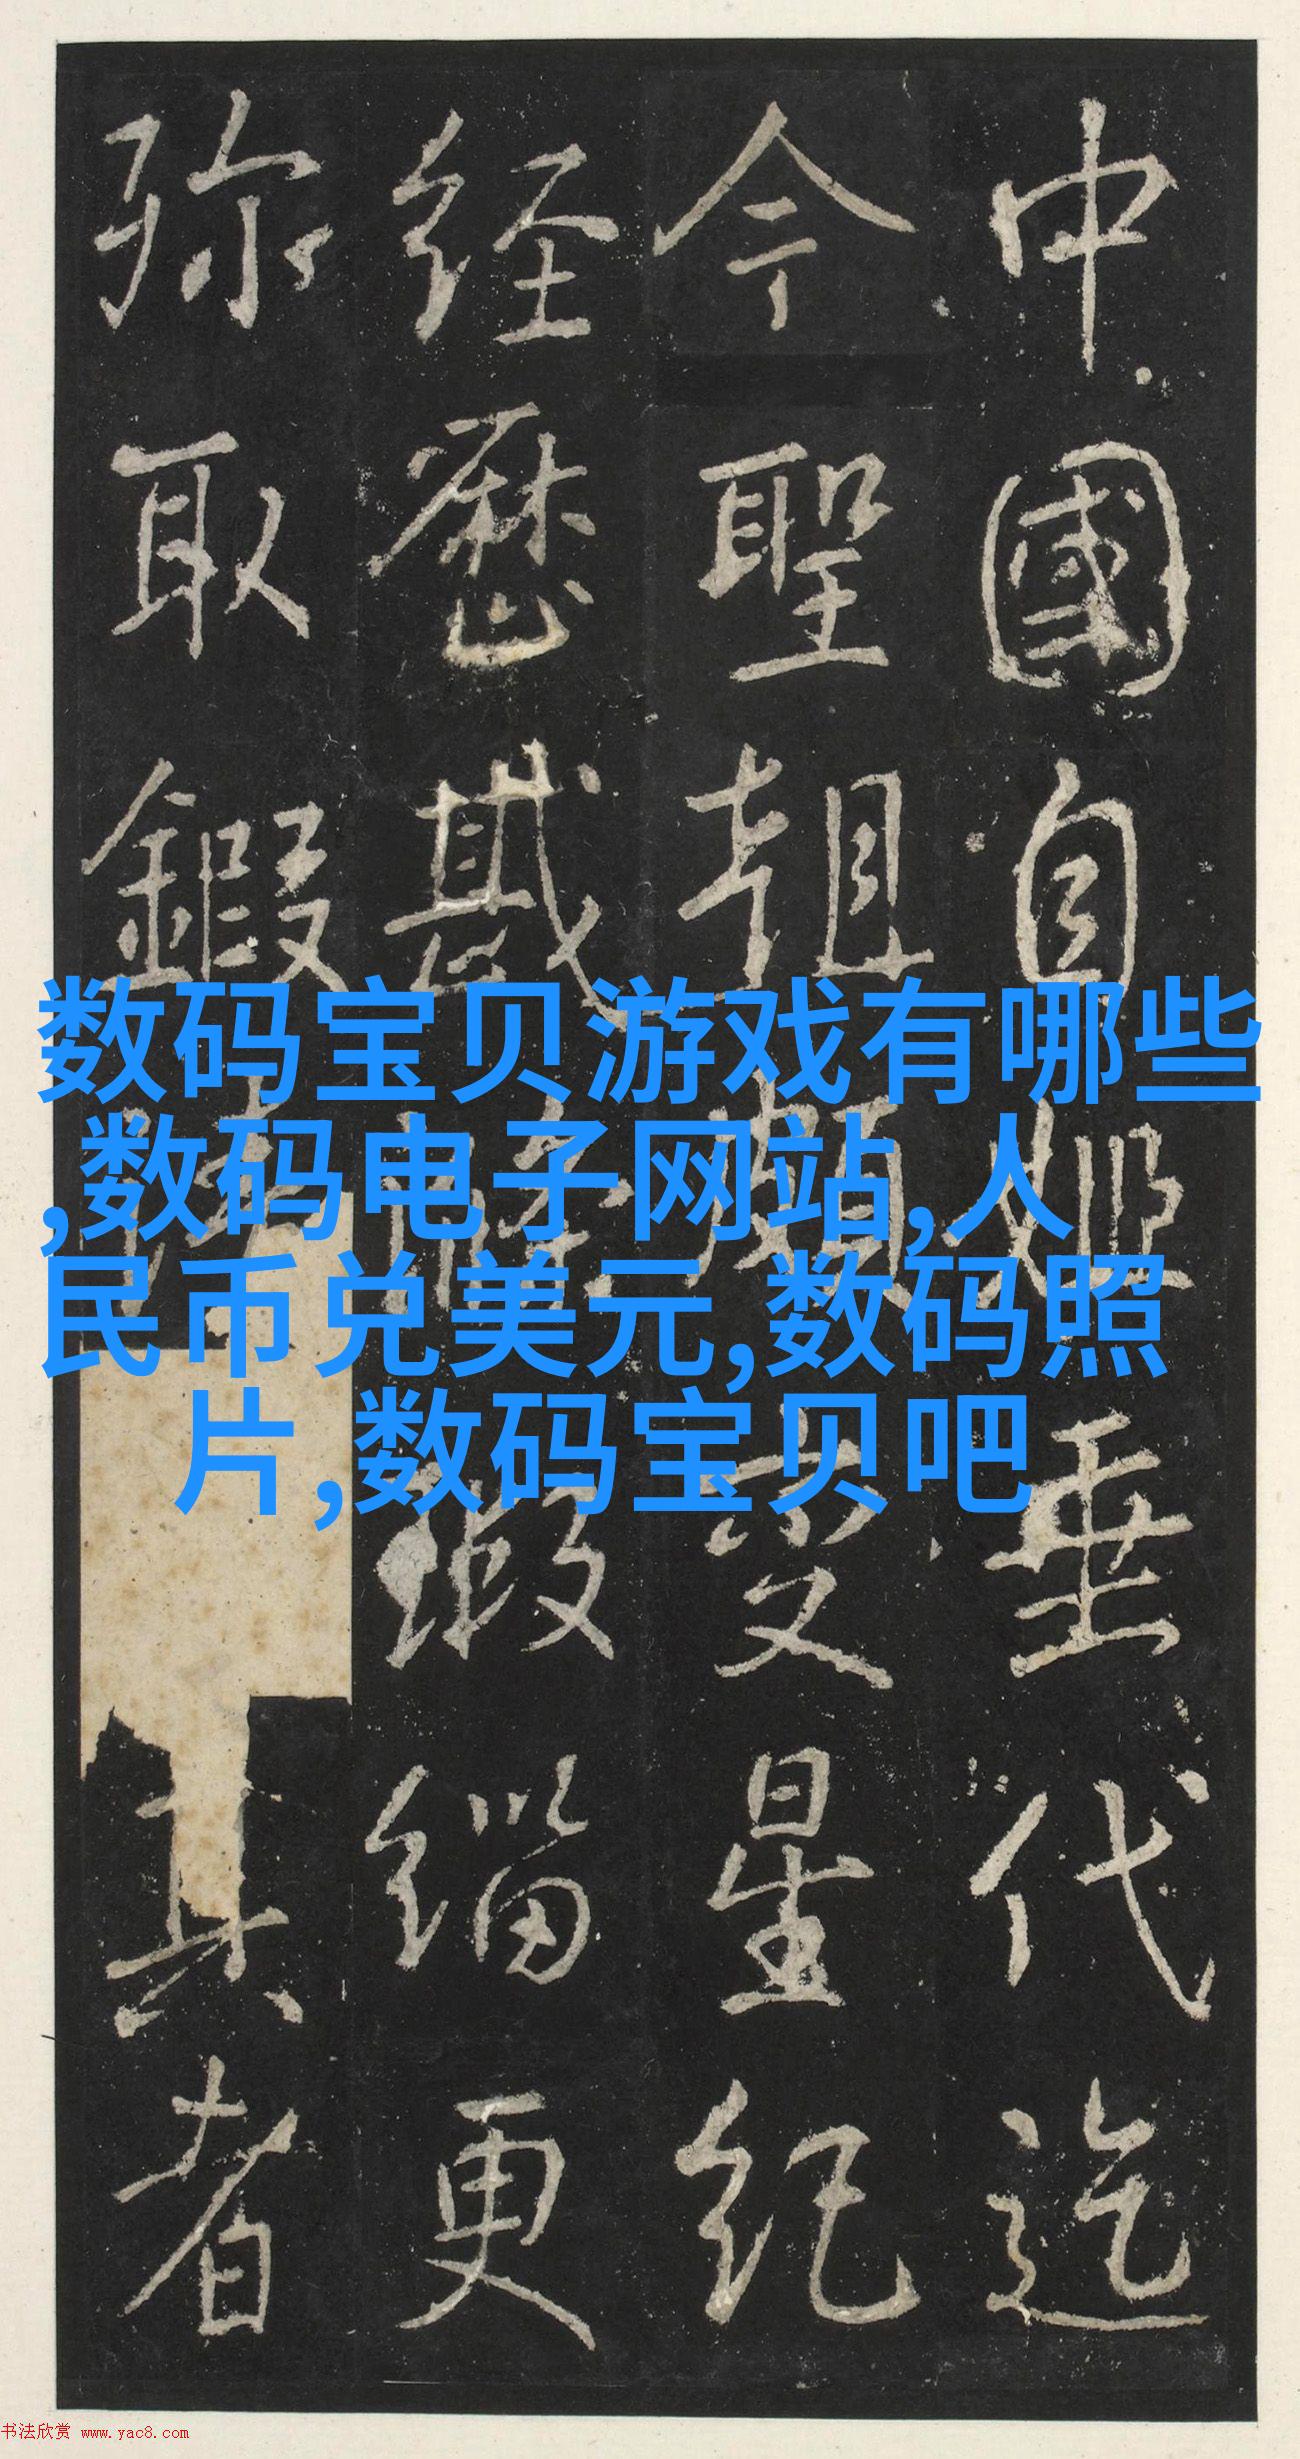 中國自垂代迄
今聖受星紀
经歷緇更
弥取鍜真者
数码宝贝游戏有哪些
,数码电子网站,人
民币兑美元,数码照
片,数码宝贝吧
书法欣赏 www.yac8.com